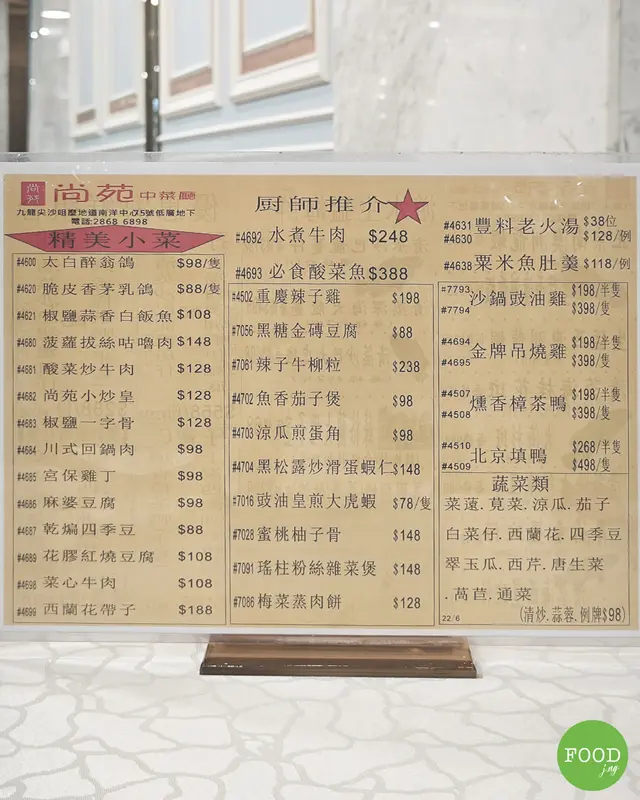 尚苑
尚苑 中菜廳
九龍尖沙咀麼地道南洋中心5號低層地下
電話:2868 6898
精美小菜
#4600 太白醉翁鴿 $98/隻
#4620 脆皮香茅乳鴿 $88/隻
#4621 椒鹽蒜香白飯魚 $108
#4680 菠蘿拔絲咕嚕肉 $148
#4681 酸菜炒牛肉 $128
#4682 尚苑小炒皇 $128
#4683 椒鹽一字骨 $128
#4684 川式回鍋肉 $98
#4685 宮保雞丁 $98
#4686 麻婆豆腐 $98
#4687 乾煸四季豆 $88
#4689 花膠紅燒豆腐 $108
#4698 菜心牛肉 $108
#4699 西蘭花帶子 $188
厨師推介
#4692 水煮牛肉 $248
#4693 必食酸菜魚 $388
#4502 重慶辣子雞 $198
#7056 黑糖金磚豆腐 $88
#7061 辣子牛柳粒 $238
#4702 魚香茄子煲 $98
#4703 涼瓜煎蛋角 $98
#4704 黑松露炒滑蛋蝦仁 $148
#7016 豉油皇煎大虎蝦 $78/隻
#7028 蜜桃柚子骨 $148
#7091 瑤柱粉絲雜菜煲 $148
#7086 梅菜蒸肉餅 $128
#4631 豐料老火湯 $38位
#4630 $128/例
#4638 粟米魚肚羹 $118/例
#7793 沙鍋豉油雞 $198/半隻
#7794 $398/隻
#4694 金牌吊燒雞 $198/半隻
#4695 $398/隻
#4507 燻香樟茶鴨 $198/半隻
#4508 $398/隻
#4510 北京填鴨 $268/半隻
#4509 $498/隻
蔬菜類
菜遠.莧菜.涼瓜.茄子
白菜仔.西蘭花.四季豆
翠玉瓜.西芹.唐生菜
.萵苣.通菜
(清炒.蒜蓉.例牌$98)
22/6
FOOD
jing